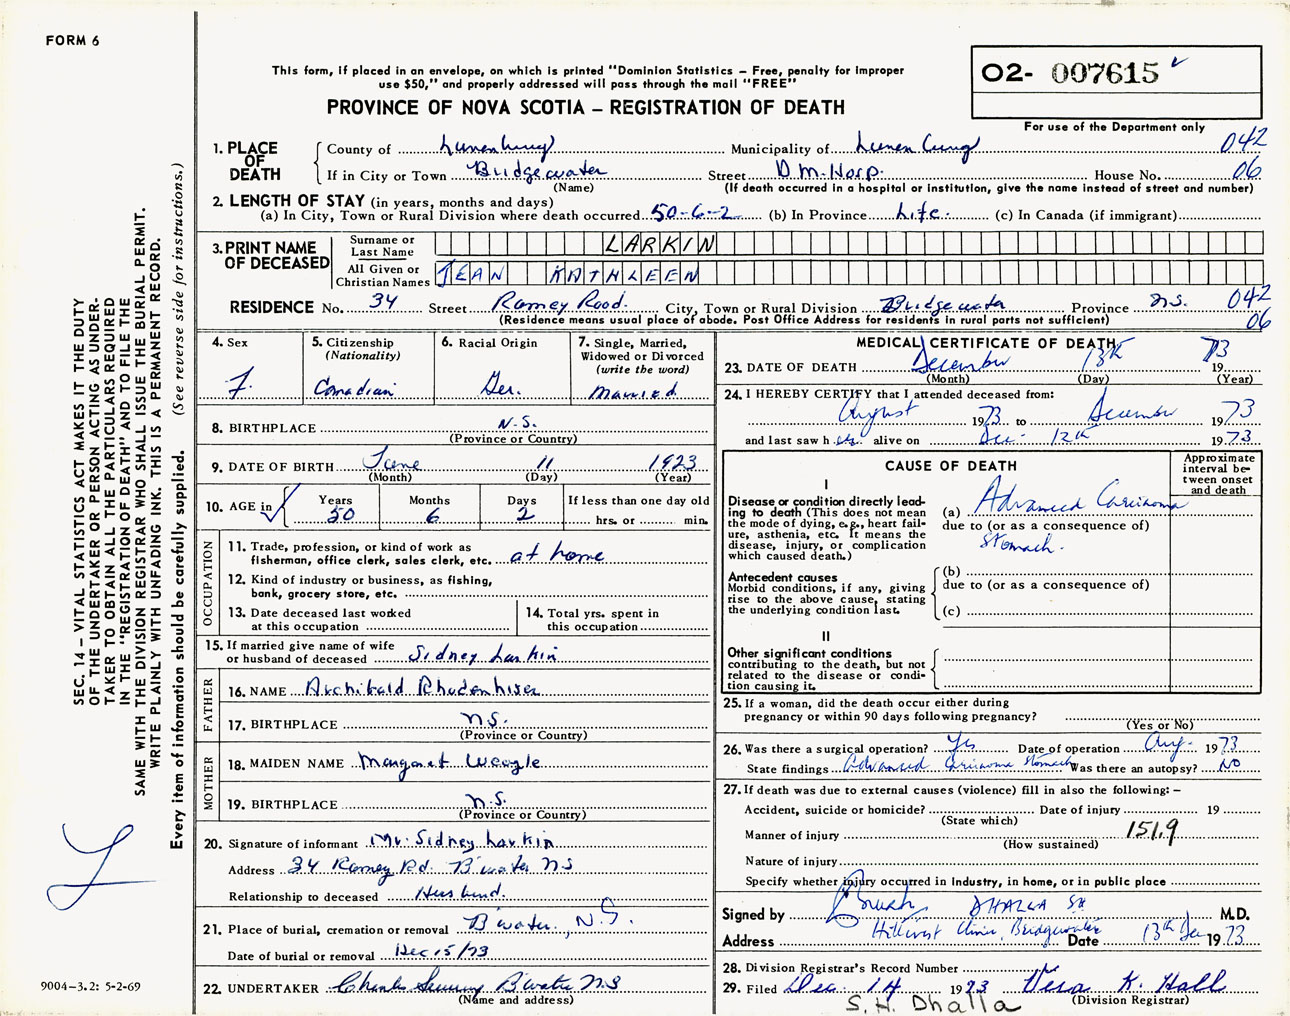 FORM 6
This form, if placed in an envelope, on which is printed "Dominion Statistics – Free, penalty for improper
use $50," and properly addressed will pass through the mail "FREE"
PROVINCE OF NOVA SCOTIA – REGISTRATION OF DEATH
02- 007615
For use of the Department only
SEC. 14 – VITAL STATISTICS ACT MAKES IT THE DUTY
OF THE UNDERTAKER OR PERSON ACTING AS UNDER-
TAKER TO OBTAIN ALL THE PARTICULARS REQUIRED
IN THE "REGISTRATION OF DEATH" AND TO FILE THE
SAME WITH THE DIVISION REGISTRAR WHO SHALL ISSUE THE BURIAL PERMIT.
WRITE PLAINLY WITH UNFADING INK. THIS IS A PERMANENT RECORD.
Every item of information should be carefully supplied. (See reverse side for instructions.)
1. PLACE OF DEATH County of Lunenburg Municipality of Lunenburg 042
If in City or Town Bridgewater Street D.M. Hosp. House No. 06
(Name) (If death occurred in a hospital or institution, give the name instead of street and number)
2. LENGTH OF STAY (in years, months and days)
(a) In City, Town or Rural Division where death occurred 50-6-2 (b) In Province Life (c) In Canada (if immigrant)
3. PRINT NAME OF DECEASED Surname or Last Name LARKIN
All Given or Christian Names JEAN KATHLEEN
RESIDENCE No. 34 Street Ramey Road. City, Town or Rural Division Bridgewater Province N.S. 042
(Residence means usual place of abode. Post Office Address for residents in rural parts not sufficient) 06
4. Sex F.
5. Citizenship (Nationality) Canadian
6. Racial Origin Ger.
7. Single, Married, Widowed or Divorced (write the word) Married
8. BIRTHPLACE N.S.
(Province or Country)
9. DATE OF BIRTH June 11 1923
(Month) (Day) (Year)
10. AGE in Years 50 Months 6 Days 2 If less than one day old hrs. or min.
OCCUPATION
11. Trade, profession, or kind of work as
fisherman, office clerk, sales clerk, etc. at home
12. Kind of industry or business, as fishing,
bank, grocery store, etc.
13. Date deceased last worked
at this occupation
14. Total yrs. spent in
this occupation
15. If married give name of wife
or husband of deceased Sidney Larkin
FATHER
16. NAME Archibald Rhodenhiser
17. BIRTHPLACE N.S.
(Province or Country)
MOTHER
18. MAIDEN NAME Margaret Weagle
19. BIRTHPLACE N.S.
(Province or Country)
20. Signature of informant Mr. Sidney Larkin
Address 34 Ramey Rd. B'water NS
Relationship to deceased Husband.
21. Place of burial, cremation or removal B'water, N.S.
Date of burial or removal Dec 15/73
22. UNDERTAKER Charles B'water NS
(Name and address)
MEDICAL CERTIFICATE OF DEATH
23. DATE OF DEATH December 13th 1973
(Month) (Day) (Year)
24. I HEREBY CERTIFY that I attended deceased from:
August 1973 to December 1973
and last saw her alive on Dec. 12th 1973
CAUSE OF DEATH
Approximate interval between onset and death
I
Disease or condition directly lead-
ing to death (This does not mean
the mode of dying, e.g., heart fail-
ure, asthenia, etc. It means the
disease, injury, or complication
which caused death.)
(a) Advanced Carcinoma
due to (or as a consequence of)
Stomach.
Antecedent causes
Morbid conditions, if any, giving
rise to the above cause, stating
the underlying condition last.
(b)
due to (or as a consequence of)
(c)
II
Other significant conditions
contributing to the death, but not
related to the disease or condi-
tion causing it.
25. If a woman, did the death occur either during
pregnancy or within 90 days following pregnancy?
(Yes or No)
26. Was there a surgical operation? Yes Date of operation Aug. 1973
State findings Advanced Carcinoma Stomach Was there an autopsy? NO
27. If death was due to external causes (violence) fill in also the following: –
Accident, suicide or homicide? Date of injury 19
(State which)
Manner of injury 151.9
(How sustained)
Nature of injury
Specify whether injury occurred in industry, in home, or in public place
Signed by DHALLA SH M.D.
Address Hillcrest Clinic, Bridgewater Date 13th Dec 1973
28. Division Registrar's Record Number
29. Filed Dec. 14 1973 Vera K. Hall
(Division Registrar)
S. H. Dhalla
9004–3.2: 5-2-69